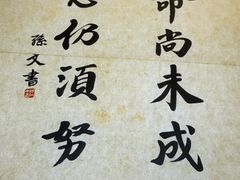 命尚未成
仍須努
孫文書